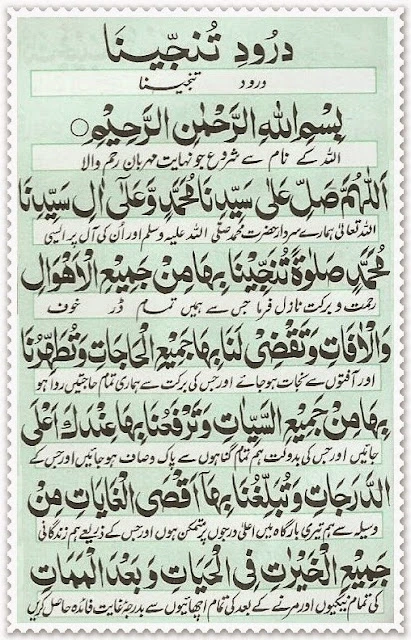 درُودِ تُنَجِّينَا
درود تنجینا
بِسْمِ اللهِ الرَّحْمٰنِ الرَّحِيْمِ ○
اللہ کے نام سے شروع جو نہایت مہربان رحم والا
اَللّٰهُمَّ صَلِّ عَلٰى سَيِّدِنَا مُحَمَّدٍ وَّعَلٰى اٰلِ سَيِّدِنَا
اللہ تعالیٰ ہمارے سردار حضرت محمد صلی اللہ علیہ وسلم اور اُن کی آل پر ایسی
مُحَمَّدٍ صَلٰوةً تُنَجِّيْنَا بِهَا مِنْ جَمِيْعِ الْاَهْوَالِ
رحمت و برکت نازل فرما جس سے ہمیں تمام ڈر خوف
وَالْاٰفَاتِ وَتَقْضِىْ لَنَا بِهَا جَمِيْعَ الْحَاجَاتِ وَتُطَهِّرُنَا
اور آفتوں سے نجات ہو جائے اور جس کی برکت سے ہماری تمام حاجتیں روا ہو
بِهَا مِنْ جَمِيْعِ السَّيِّاٰتِ وَتَرْفَعُنَا بِهَا عِنْدَكَ اَعْلَى
جائیں اور جس کی بدولت ہم تمام گناہوں سے پاک و صاف ہو جائیں اور جس کے
الدَّرَجَاتِ وَتُبَلِّغُنَا بِهَا اَقْصَى الْغَايَاتِ مِنْ
وسیلہ سے ہم تیری بارگاہ میں اعلیٰ درجوں پر متمکن ہوں اور جس کے ذریعے ہم زندگانی
جَمِيْعِ الْخَيْرَاتِ فِى الْحَيَاتِ وَبَعْدَ الْمَمَاتِ
کی تمام نیکیوں اور مرنے کے بعد کی تمام اچھائیوں سے بدرجہ غایت فائدہ حاصل کریں